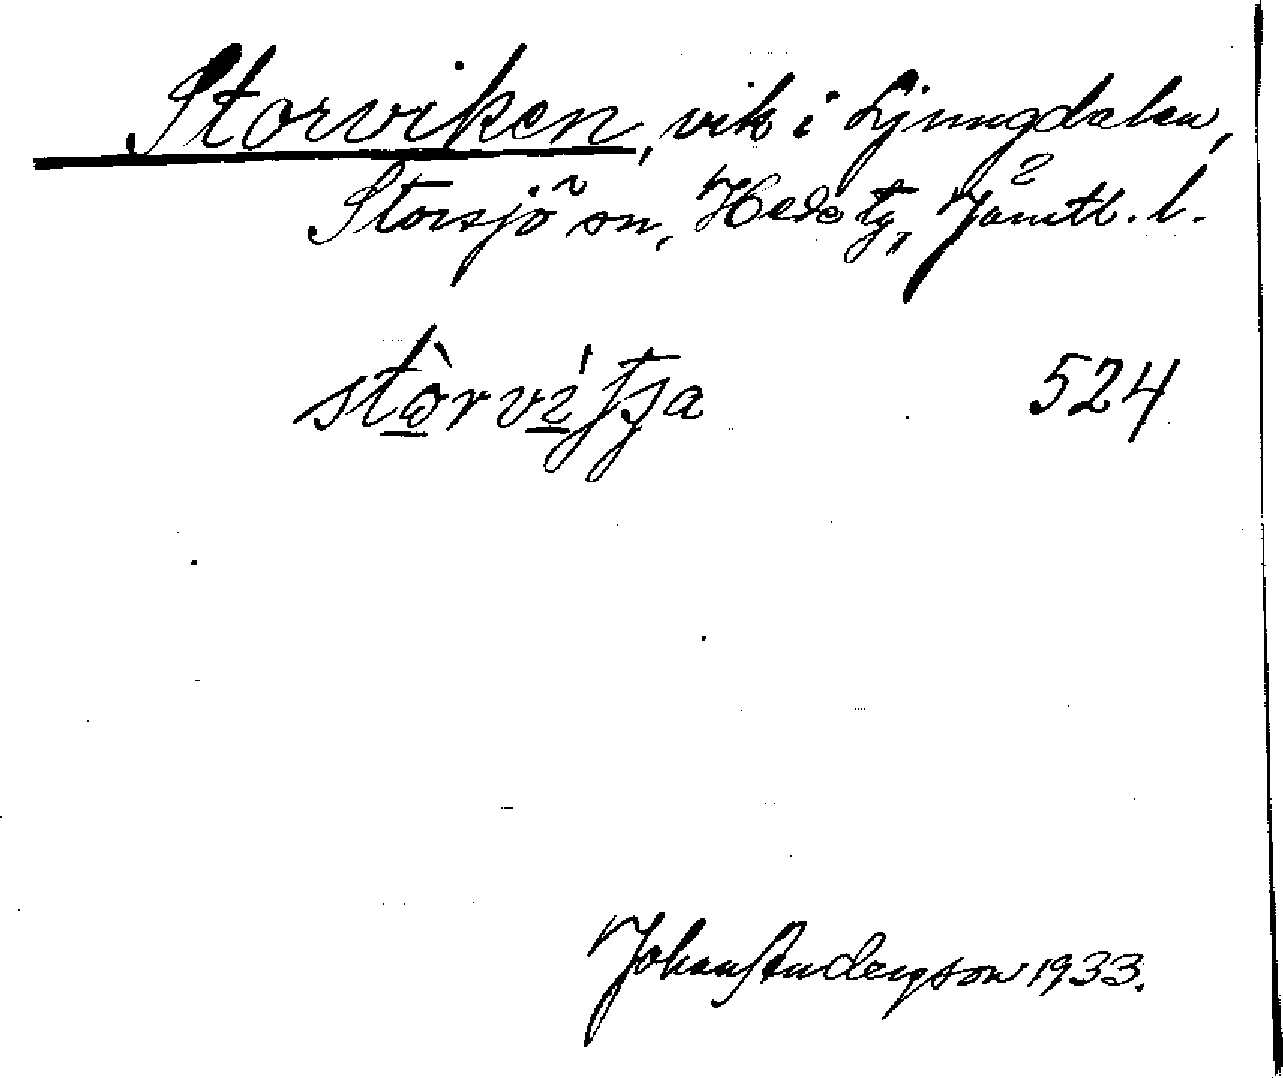 Storviken, vik i Ljungdalen,
Storsjö sn, Hede tg, Jämtl. l.
stòrvı́ 524
Johan Anderson 1933.